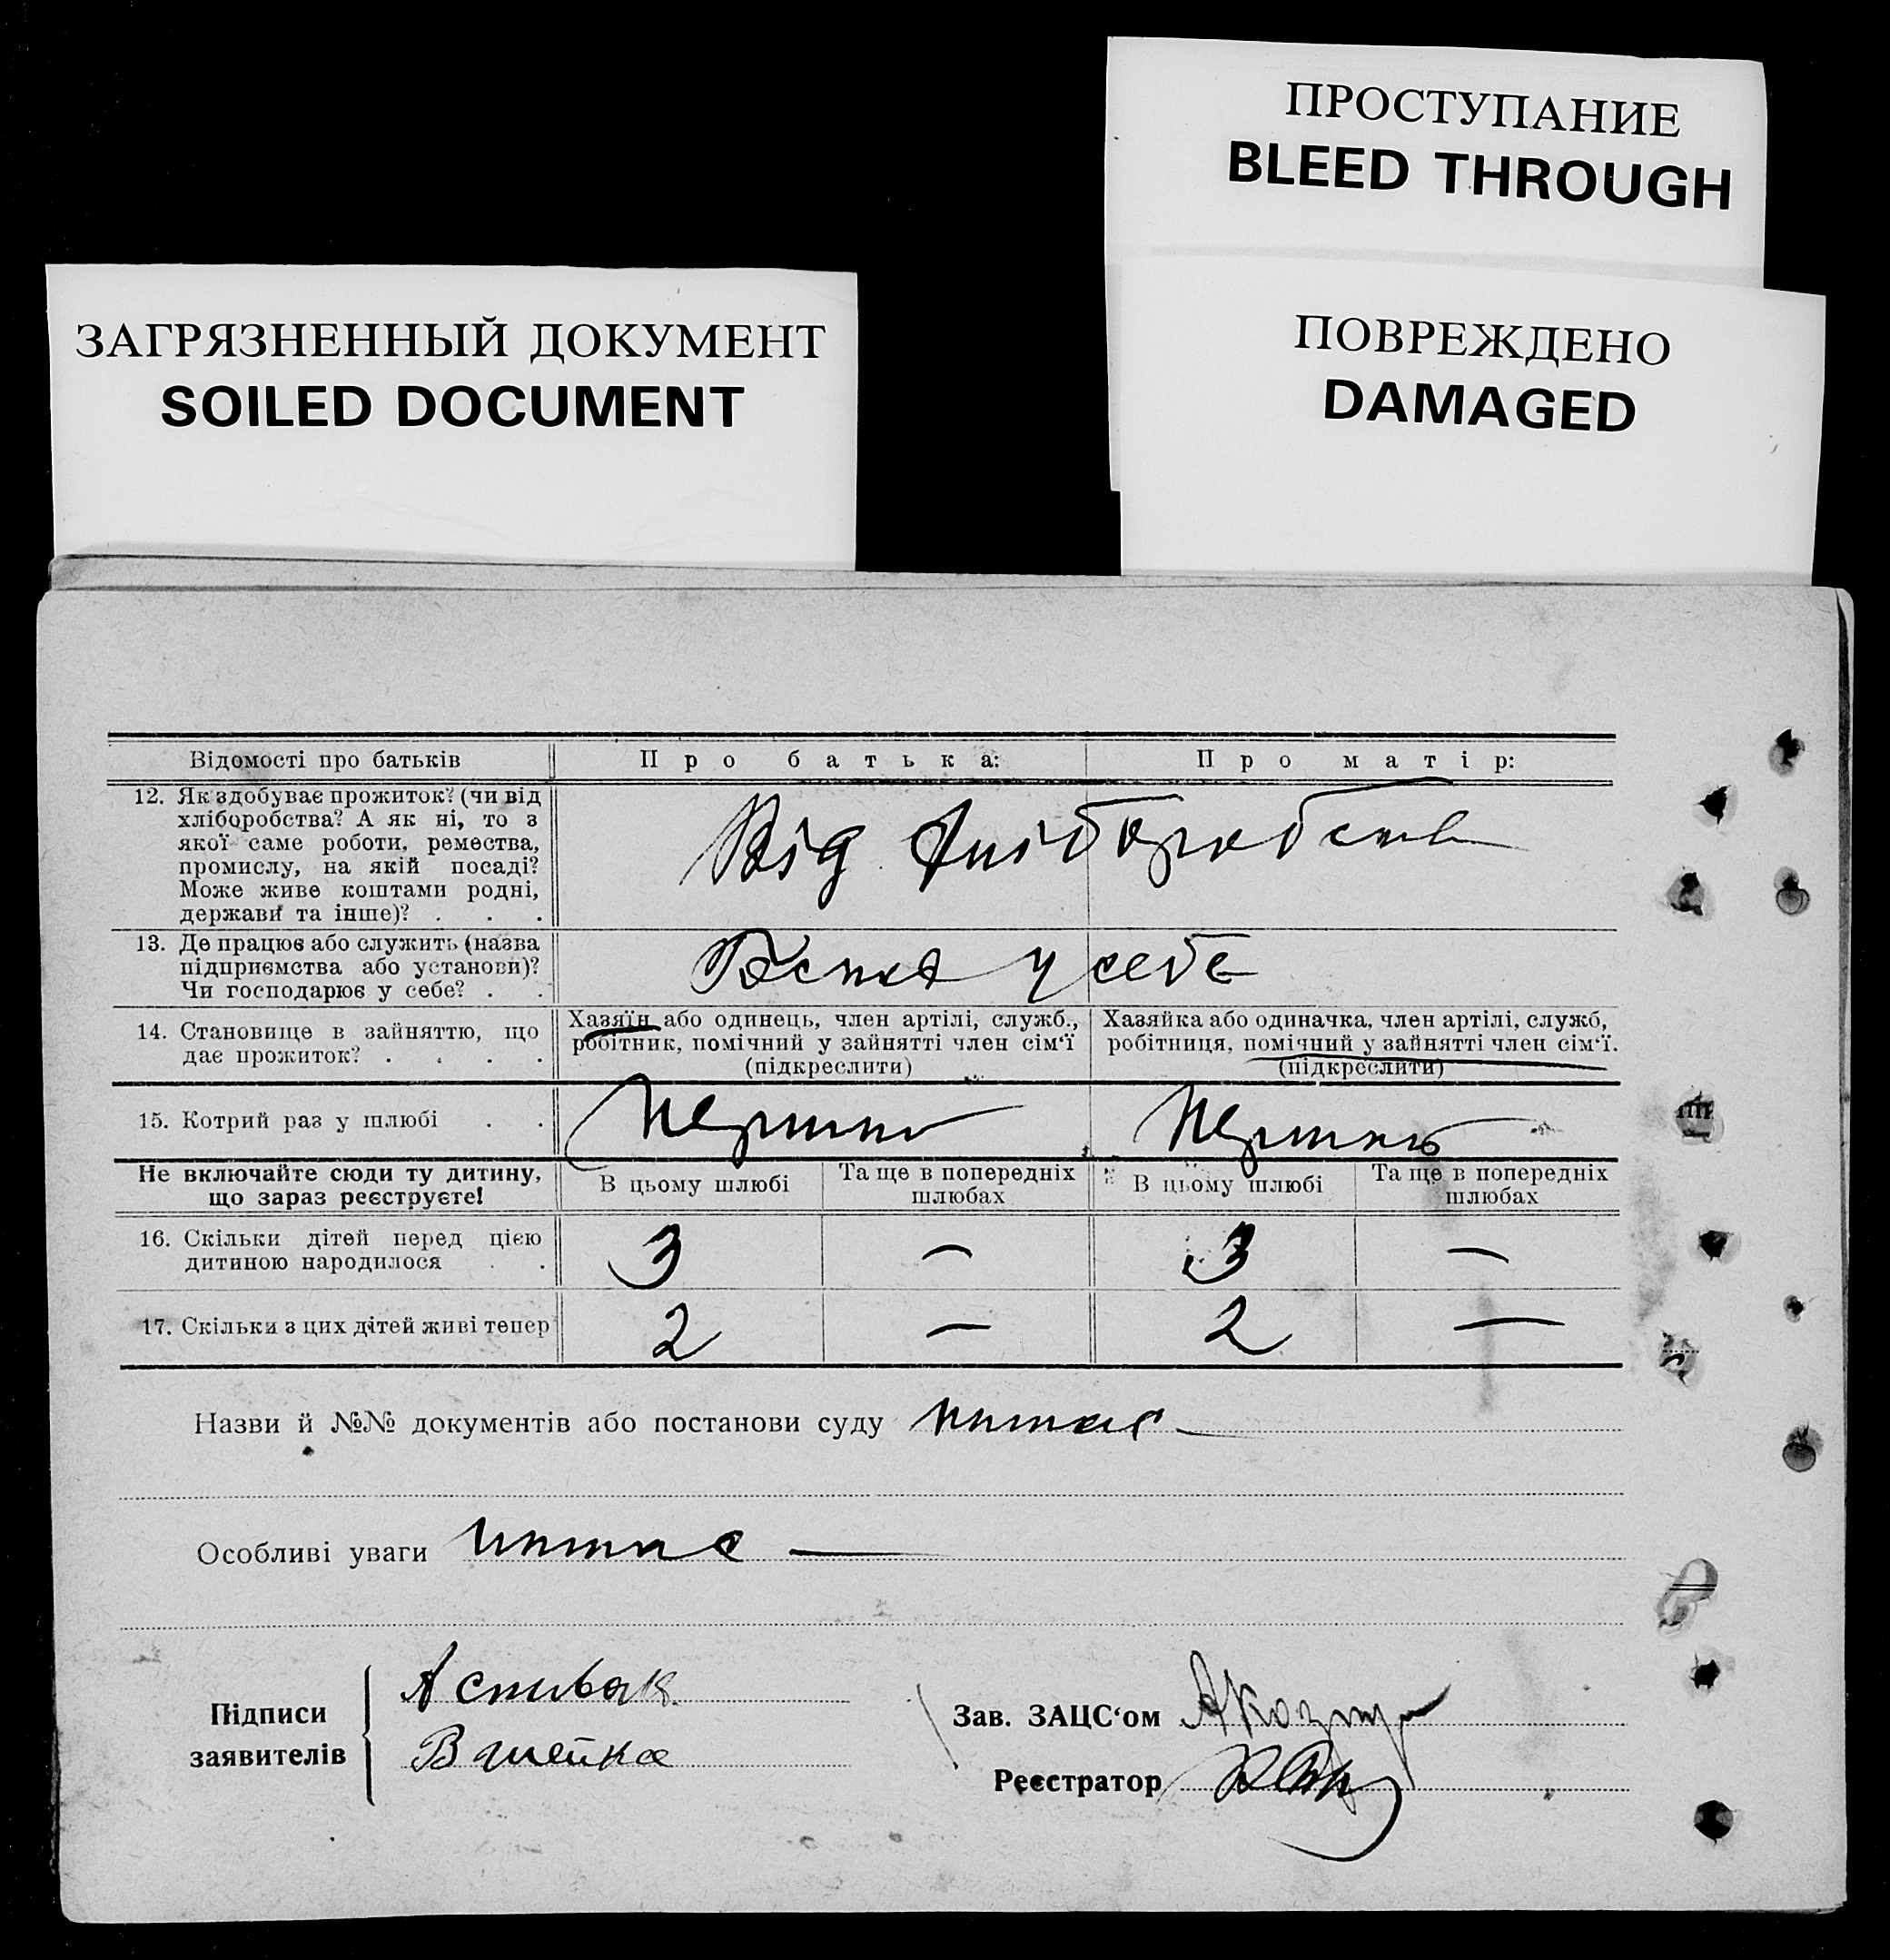 ПРОСТУПАНИЕ
BLEED THROUGH
ЗАГРЯЗНЕННЫЙ ДОКУМЕНТ
SOILED DOCUMENT
ПОВРЕЖДЕНО
DAMAGED
Відомості про батьків
Про батька:
Про матір:
12. Як здобуває прожиток? (чи від
хліборобства? А як ні, то з
якої саме роботи, ремества,
промислу, на якій посаді?
Може живе коштами родні,
держави та інше)? . . .
Від хліборобства
13. Де працює або служить (назва
підприємства або установи)?
Чи господарює у себе? . .
у себе
14. Становище в зайняттю, що
дає прожиток? . . . .
Хазяїн або одинець, член артілі, служб.,
робітник, помічний у зайнятті член сім'ї
(підкреслити)
Хазяйка або одиначка, член артілі, служб,
робітниця, помічний у зайнятті член сім'ї.
(підкреслити)
15. Котрий раз у шлюбі . .
Перший
Перший
Не включайте сюди ту дитину,
що зараз реєструєте!
В цьому шлюбі
Та ще в попередніх
шлюбах
В цьому шлюбі
Та ще в попередніх
шлюбах
16. Скільки дітей перед цією
дитиною народилося . .
3 — 3 —
17. Скільки з цих дітей живі тепер
2 — 2 —
Назви й №№ документів або постанови суду
Особливі уваги
Підписи
заявителів
А Співак
В Шейка
Зав. ЗАЦС'ом
Реєстратор